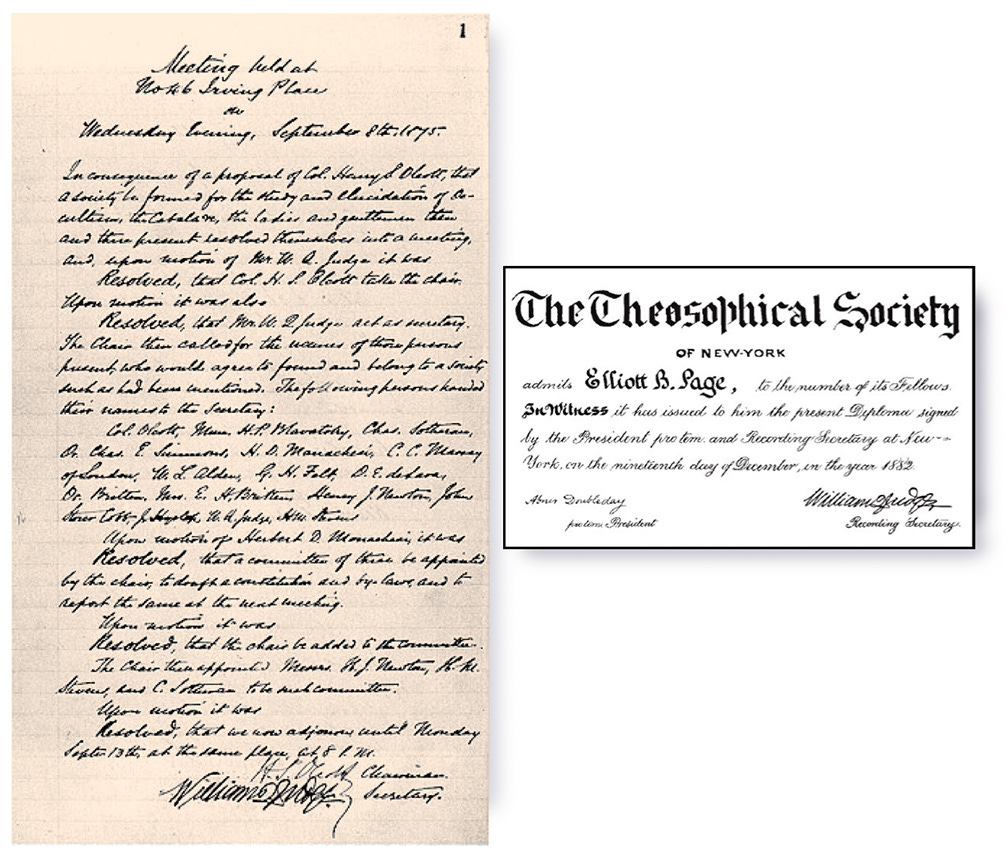 1
Meeting held at
No 46 Irving Place
on
Wednesday Evening, September 8th, 1875.
In consequence of a proposal of Col. Henry S. Olcott, that
a society be formed for the study and elucidation of Oc-
cultism, the Cabala &c, the ladies and gentlemen then
and there present resolved themselves into a meeting,
and, upon motion of Mr. W. Q. Judge it was
Resolved, that Col. H. S. Olcott take the chair.
Upon motion it was also
Resolved, that Mr. W. Q. Judge act as secretary.
The Chair then called for the names of those persons
present, who would agree to found and belong to a society
such as had been mentioned. The following persons handed
their names to the Secretary:
Col. Olcott, Mme. H. P. Blavatsky, Chas. Sotheran,
Dr. Chas. E. Simmons, H. D. Monachesi, C. C. Massey
of London, W. L. Alden, G. H. Felt, D. E. de Lara,
Dr. Britten, Mrs. E. H. Britten, Henry J. Newton, John
Storer Cobb, J. Hyslop, W. Q. Judge, H. M. Stevens
Upon motion of Herbert D. Monachesi, it was
Resolved, that a committee of three be appointed
by the chair, to draft a constitution and by-laws, and to
report the same at the next meeting.
Upon motion it was
Resolved, that the chair be added to the committee.
The Chair then appointed Messrs. H. J. Newton, H. M.
Stevens, and C. Sotheran to be such committee.
Upon motion it was
Resolved, that we now adjourn until Monday
Septr 13th, at the same place, at 8 P.M.
H. S. Olcott Chairman.
William Q Judge Secretary.
The Theosophical Society
OF NEW-YORK
admits Elliott B. Page, to the number of its Fellows.
In Witness it has issued to him the present Diploma signed
by the President pro tem. and Recording Secretary at New-
York, on the nineteenth day of December, in the year 1882.
Abner Doubleday William Q Judge
pro tem President Recording Secretary.